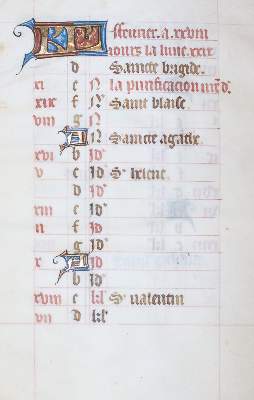 KL feurier. a. xxviii
iours la lune. xxix
d Saincte brigide.
xi e N la purificacion
xix f N Saint blaise.
viii g N
A N Saincte agathe.
xvi b Id'
v c Id'
d Id'
xiii e Id'
ii f Id'
g Id'
x A Id'
b Id'
xviii c kl' St valentin
vii d kl'